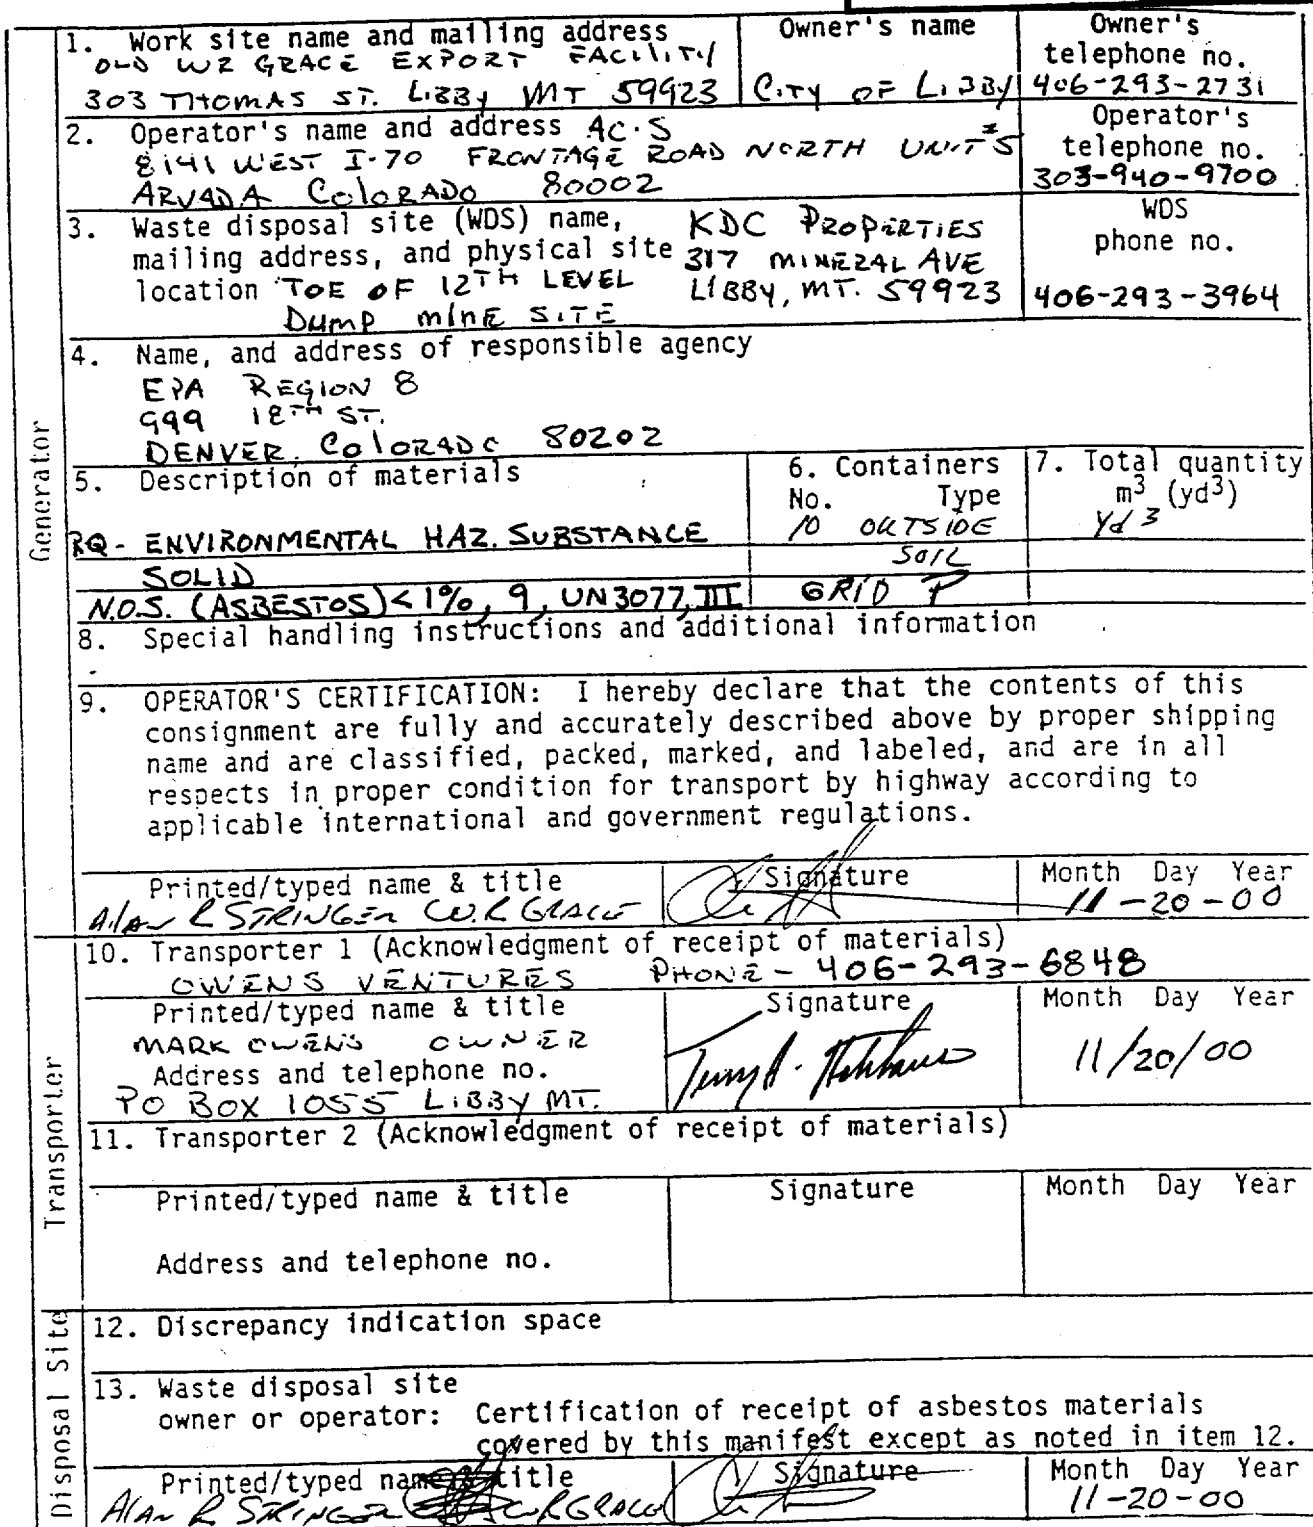 1. Work site name and mailing address
OLD WR GRACE EXPORT FACILITY
303 THOMAS ST. LIBBY MT 59923
Owner's name
CITY OF LIBBY
Owner's
telephone no.
406-293-2731
2. Operator's name and address AC-S
8141 WEST I-70 FRONTAGE ROAD NORTH UNIT #5
ARVADA COLORADO 80002
Operator's
telephone no.
303-940-9700
3. Waste disposal site (WDS) name,
mailing address, and physical site
location TOE OF 12TH LEVEL
DUMP MINE SITE
KDC PROPERTIES
317 MINERAL AVE
LIBBY, MT. 59923
WDS
phone no.
406-293-3964
4. Name, and address of responsible agency
EPA REGION 8
999 18TH ST.
DENVER, COLORADO 80202
Generator
5. Description of materials
RQ- ENVIRONMENTAL HAZ. SUBSTANCE
SOLID
N.O.S. (ASBESTOS) <1%, 9, UN3077, III
6. Containers
No. Type
10 OUTSIDE
SOIL
GRID F
7. Total quantity
m3 (yd3)
Yd 3
8. Special handling instructions and additional information
9. OPERATOR'S CERTIFICATION: I hereby declare that the contents of this
consignment are fully and accurately described above by proper shipping
name and are classified, packed, marked, and labeled, and are in all
respects in proper condition for transport by highway according to
applicable international and government regulations.
Printed/typed name & title
Alan R STRINGER W.R GRACE
Signature
Month Day Year
11-20-00
Transporter
10. Transporter 1 (Acknowledgment of receipt of materials)
OWENS VENTURES PHONE - 406-293-6848
Printed/typed name & title
MARK OWENS OWNER
Address and telephone no.
PO BOX 1055 LIBBY MT.
Signature
Month Day Year
11/20/00
11. Transporter 2 (Acknowledgment of receipt of materials)
Printed/typed name & title
Signature
Month Day Year
Address and telephone no.
Disposal Site
12. Discrepancy indication space
13. Waste disposal site
owner or operator: Certification of receipt of asbestos materials
covered by this manifest except as noted in item 12.
Printed/typed name & title
Alan R STRINGER W R GRACE
Signature
Month Day Year
11-20-00